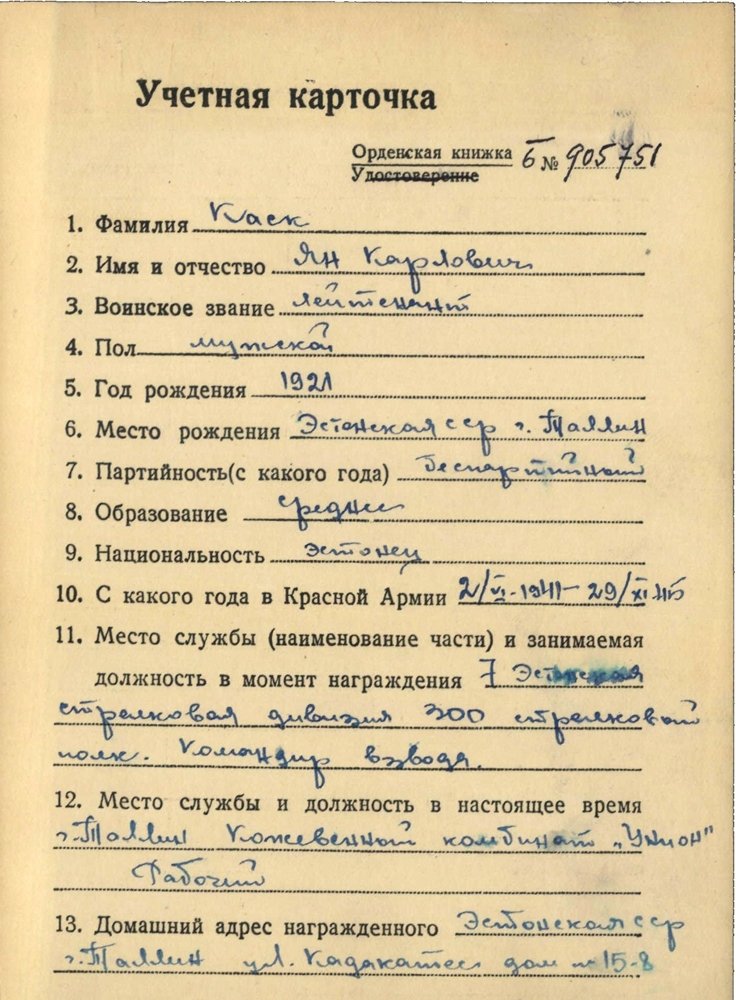 Учетная карточка
Орденская книжка Б № 905751
Удостоверение
1. Фамилия Каск
2. Имя и отчество Ян Карлович
3. Воинское звание лейтенант
4. Пол мужской
5. Год рождения 1921
6. Место рождения Эстонская сср г. Таллин
7. Партийность(с какого года) беспартийный
8. Образование среднее
9. Национальность эстонец
10. С какого года в Красной Армии 2/VI-1941-29/XI.45
11. Место службы (наименование части) и занимаемая
должность в момент награждения 7 Эстонская
стрелковая дивизия 300 стрелковый
полк. Командир взвода.
12. Место службы и должность в настоящее время
г. Таллин Кожевенный комбинат „Унион"
Рабочий
13. Домашний адрес награжденного Эстонская сср
г. Таллин ул. дом № 15-8